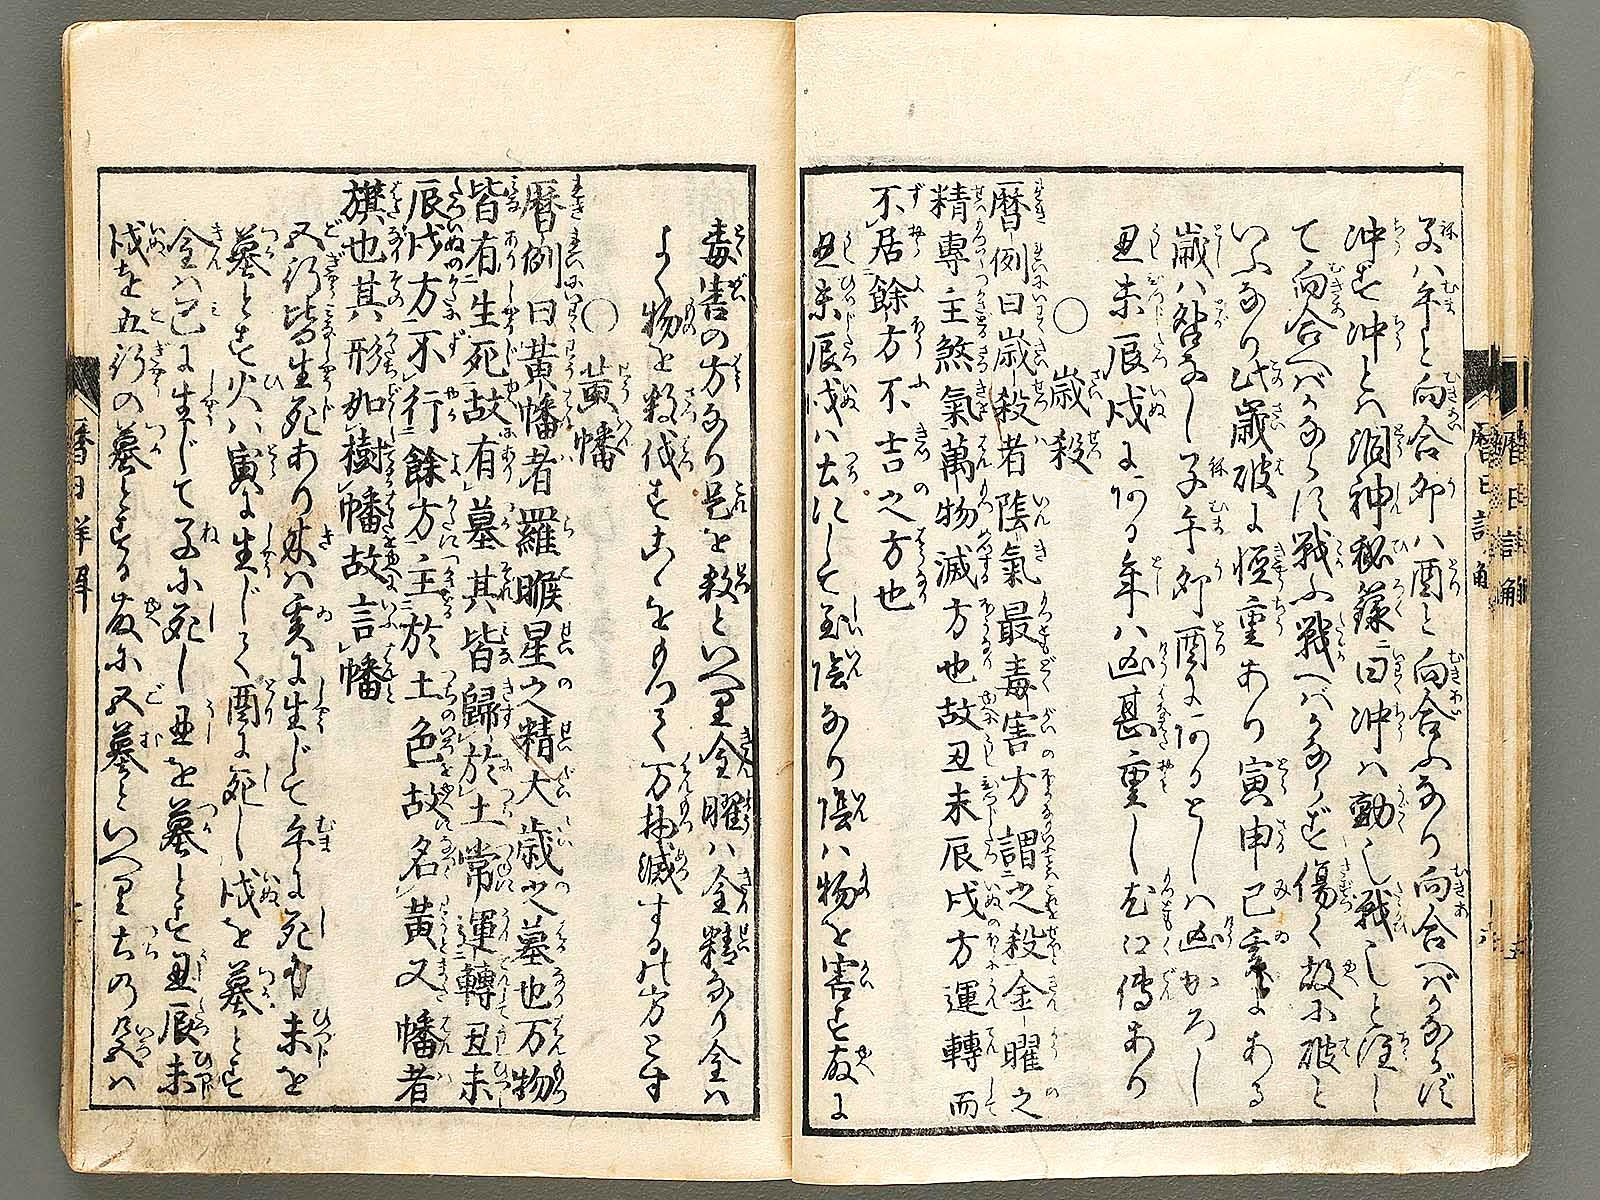 子ハ午と向合卯ハ酉と向合ふなり向合へバかならず
冲す冲とハ洞神秘録ニ曰冲ハ動也戦也と注し
て向合へバかならず戦ふ戦へバかならず傷く故に破と
いふなり此歳破に軽重あり寅申巳亥にある
歳ハ咎なし子午卯酉にあるとしハ凶かろし
丑未辰戌にある年ハ凶甚重し尤口傳あり
〇歳殺
暦例曰歳殺者陰氣最毒害方謂之殺金曜之
精專主煞氣萬物滅方也故丑未辰戌方運轉而
不居餘方不吉之方也
丑未辰戌ハ土にして至陰なり陰ハ物を害す故に
毒害の方なり是を殺といへり金曜ハ金精なり金ハ
よく物を殺伐すことをもつて万物滅するの方とす
〇黄幡
暦例曰黄幡者羅睺星之精大歳之墓也万物
皆有生死故有墓其皆歸於土常運轉丑未
辰戌方不行餘方主於土色故名黄又幡者
旗也其形如樹幡故言幡
五行皆生死あり木ハ亥に生じて午に死し未を
墓とす火ハ寅に生じて酉に死し戌を墓とす
金ハ巳に生じて子に死し丑を墓とす丑辰未
戌を五行の墓とする故に又墓といへり土の色ハ
暦日詳解